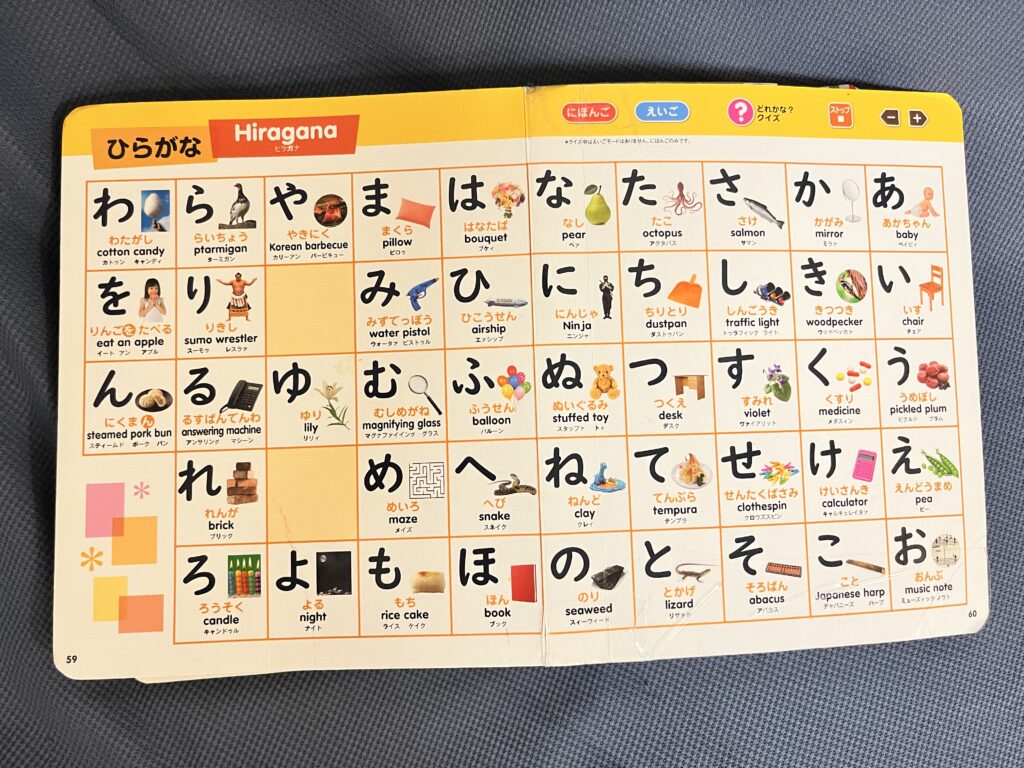 ひらがな
Hiragana
ヒラガナ
にほんご
えいご
?
どれかな？
クイズ
ストップ
*クイズ中はえいごモードはありません。にほんごのみです。
あ
あかちゃん
baby
ベイビィ
い
いす
chair
チェア
う
うめぼし
pickled plum
ピクルド プラム
え
えんどうまめ
pea
ピー
お
おんぷ
music note
ミューズィック ノウト
か
かがみ
mirror
ミラァ
き
きつつき
woodpecker
ウッドペッカァ
く
くすり
medicine
メダスィン
け
けいさんき
calculator
キャルキュレイタァ
こ
こと
Japanese harp
ヂャパニーズ ハープ
さ
さけ
salmon
サマン
し
しんごうき
traffic light
トゥラフィック ライト
す
すみれ
violet
ヴァイアリット
せ
せんたくばさみ
clothespin
クロウズスピン
そ
そろばん
abacus
アバカス
た
たこ
octopus
アクタパス
ち
ちりとり
dustpan
ダストゥパン
つ
つくえ
desk
デスク
て
てんぷら
tempura
テンプラ
と
とかげ
lizard
リザァド
な
なし
pear
ペァ
に
にんじゃ
Ninja
ニンジャ
ぬ
ぬいぐるみ
stuffed toy
スタッフト トィ
ね
ねんど
clay
クレィ
の
のり
seaweed
スィーウィード
は
はなたば
bouquet
ブケィ
ひ
ひこうせん
airship
エァシップ
ふ
ふうせん
balloon
バルーン
へ
へび
snake
スネイク
ほ
ほん
book
ブック
ま
まくら
pillow
ピロゥ
み
みずてっぽう
water pistol
ウォータァ ピストゥル
む
むしめがね
magnifying glass
マグナファイイング グラス
め
めいろ
maze
メイズ
も
もち
rice cake
ライス ケイク
や
やきにく
Korean barbecue
カリーアン バービキュー
ゆ
ゆり
lily
リリィ
よ
よる
night
ナイト
ら
らいちょう
ptarmigan
ターミガン
り
りきし
sumo wrestler
スーモゥ レスラァ
る
るすばんでんわ
answering machine
アンサリング マシーン
れ
れんが
brick
ブリック
ろ
ろうそく
candle
キャンドゥル
わ
わたがし
cotton candy
カトゥン キャンディ
を
りんごを たべる
eat an apple
イート アン アプル
ん
にくまん
steamed pork bun
スティームド ポーク バン
59
60